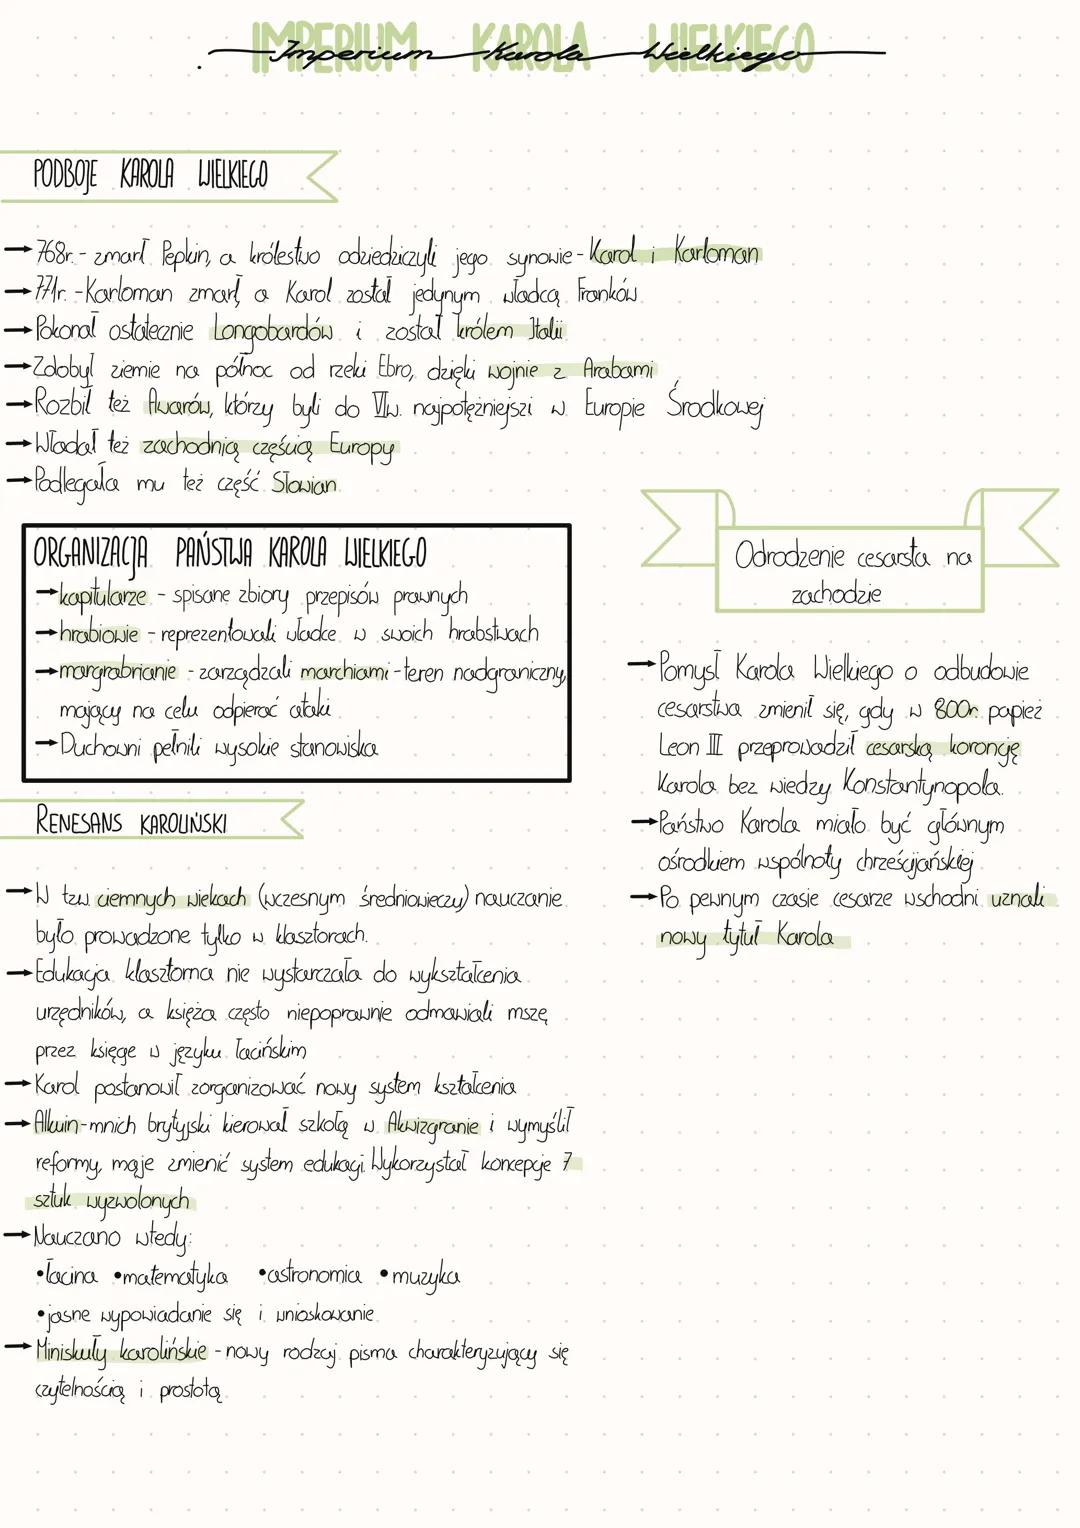 IMPERIUM KAROLA WIELKIEGO
Imperium Karola Wielkiego
PODBOJE KAROLA WIELKIEGO
→768r. - zmarł Pepkin, a królestwo odziedziczyli jego synowie - Karol i Karloman
→771r. - Karloman zmarł, a Karol został jedynym władcą Franków
→Pokonał ostatecznie Longobardów i został królem Italii
→Zdobył ziemie na północ od rzeki Ebro, dzięki wojnie z Arabami
→Rozbił też Awarów, którzy byli do VIw. najpotężniejszi w Europie Środkowej
→Władał też zachodnią częścią Europy
→Podlegała mu też część Słowian
ORGANIZACJA PAŃSTWA KAROLA WIELKIEGO
→kapitularze - spisane zbiory przepisów prawnych
→hrabiowie - reprezentowali władce w swoich hrabstwach
→margrabrianie - zarządzali marchiami - teren nadgraniczny,
mający na celu odpierać ataki
→Duchowni pełnili wysokie stanowiska
Odrodzenie cesarsta na
zachodzie
→Pomysł Karola Wielkiego o odbudowie
cesarstwa zmienił się, gdy w 800r. papież
Leon III przeprowadził cesarską koroncję
Karola bez wiedzy Konstantynopola.
→Państwo Karola miało być głównym
ośrodkiem wspólnoty chrześcijańskiej
→Po pewnym czasie cesarze wschodni uznali
nowy tytuł Karola
RENESANS KAROLIŃSKI
→W tzw. ciemnych wiekach (wczesnym średniowieczu) nauczanie
było prowadzone tylko w klasztorach.
→Edukacja klasztorna nie wystarczała do wykształcenia
urzędników, a księża często niepoprawnie odmawiali mszę
przez księge w języku łacińskim
→Karol postanowił zorganizować nowy system kształcenia
→Alkuin - mnich brytyjski kierował szkołą w Akwizgranie i wymyślił
reformy, maje zmienić system edukacji. Wykorzystał koncepcje 7
sztuk wyzwolonych
→Nauczano wtedy:
•łacina •matematyka •astronomia •muzyka
•jasne wypowiadanie się i wnioskowanie
→Miniskuły karolińskie - nowy rodzaj pisma charakteryzujący się
czytelnością i prostotą